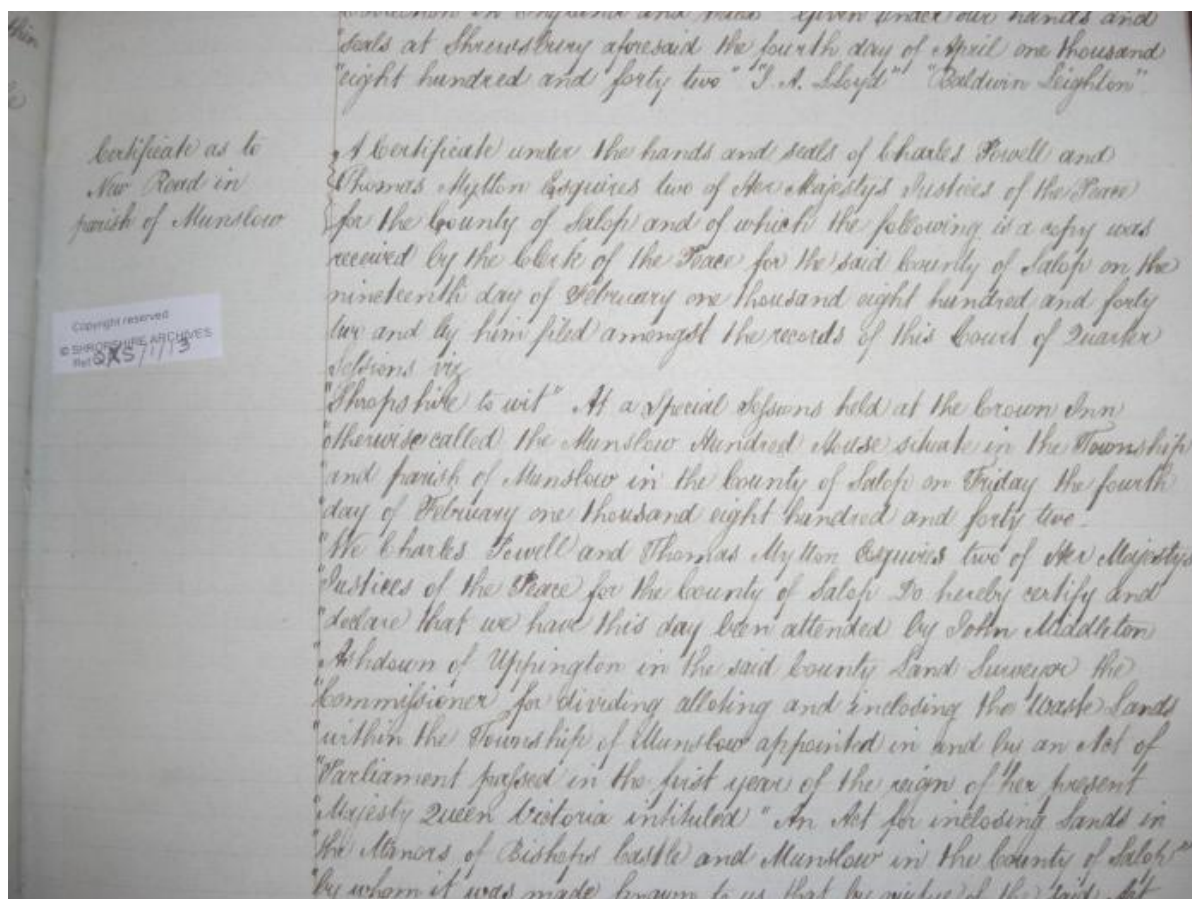 Correction in England and Wales" Given under our hands and
"seals at Shrewsbury aforesaid the fourth day of April one thousand
"eight hundred and forty two" "J. A. Lloyd" "Baldwin Leighton".
Certificate as to
New Road in
parish of Munslow
A Certificate under the hands and seals of Charles Powell and
Thomas Mytton Esquires two of Her Majestys Justices of the Peace
for the County of Salop and of which the following is a copy was
received by the Clerk of the Peace for the said County of Salop on the
nineteenth day of February one thousand eight hundred and forty
two and by him filed amongst the records of this Court of Quarter
Sessions viz
Copyright reserved
© SHROPSHIRE ARCHIVES
Ref QXS/1/13
"Shropshire to wit" At a Special Sessions held at the Crown Inn
"otherwise called the Munslow Hundred House situate in the Township
"and parish of Munslow in the County of Salop on Friday the fourth
"day of February one thousand eight hundred and forty two.
"We Charles Powell and Thomas Mytton Esquires two of Her Majestys
"Justices of the Peace for the County of Salop Do hereby certify and
"declare that we have this day been attended by John Middleton
"Ashdown of Uppington in the said County Land Surveyor the
"Commissioner for dividing alloting and inclosing the Waste Lands
"within the Township of Munslow appointed in and by an Act of
"Parliament passed in the first year of the reign of her present
"Majesty Queen Victoria intituled "An Act for inclosing Lands in
"the Manors of Bishops Castle and Munslow in the County of Salop"
"by whom it was made known to us that by virtue of the said Act